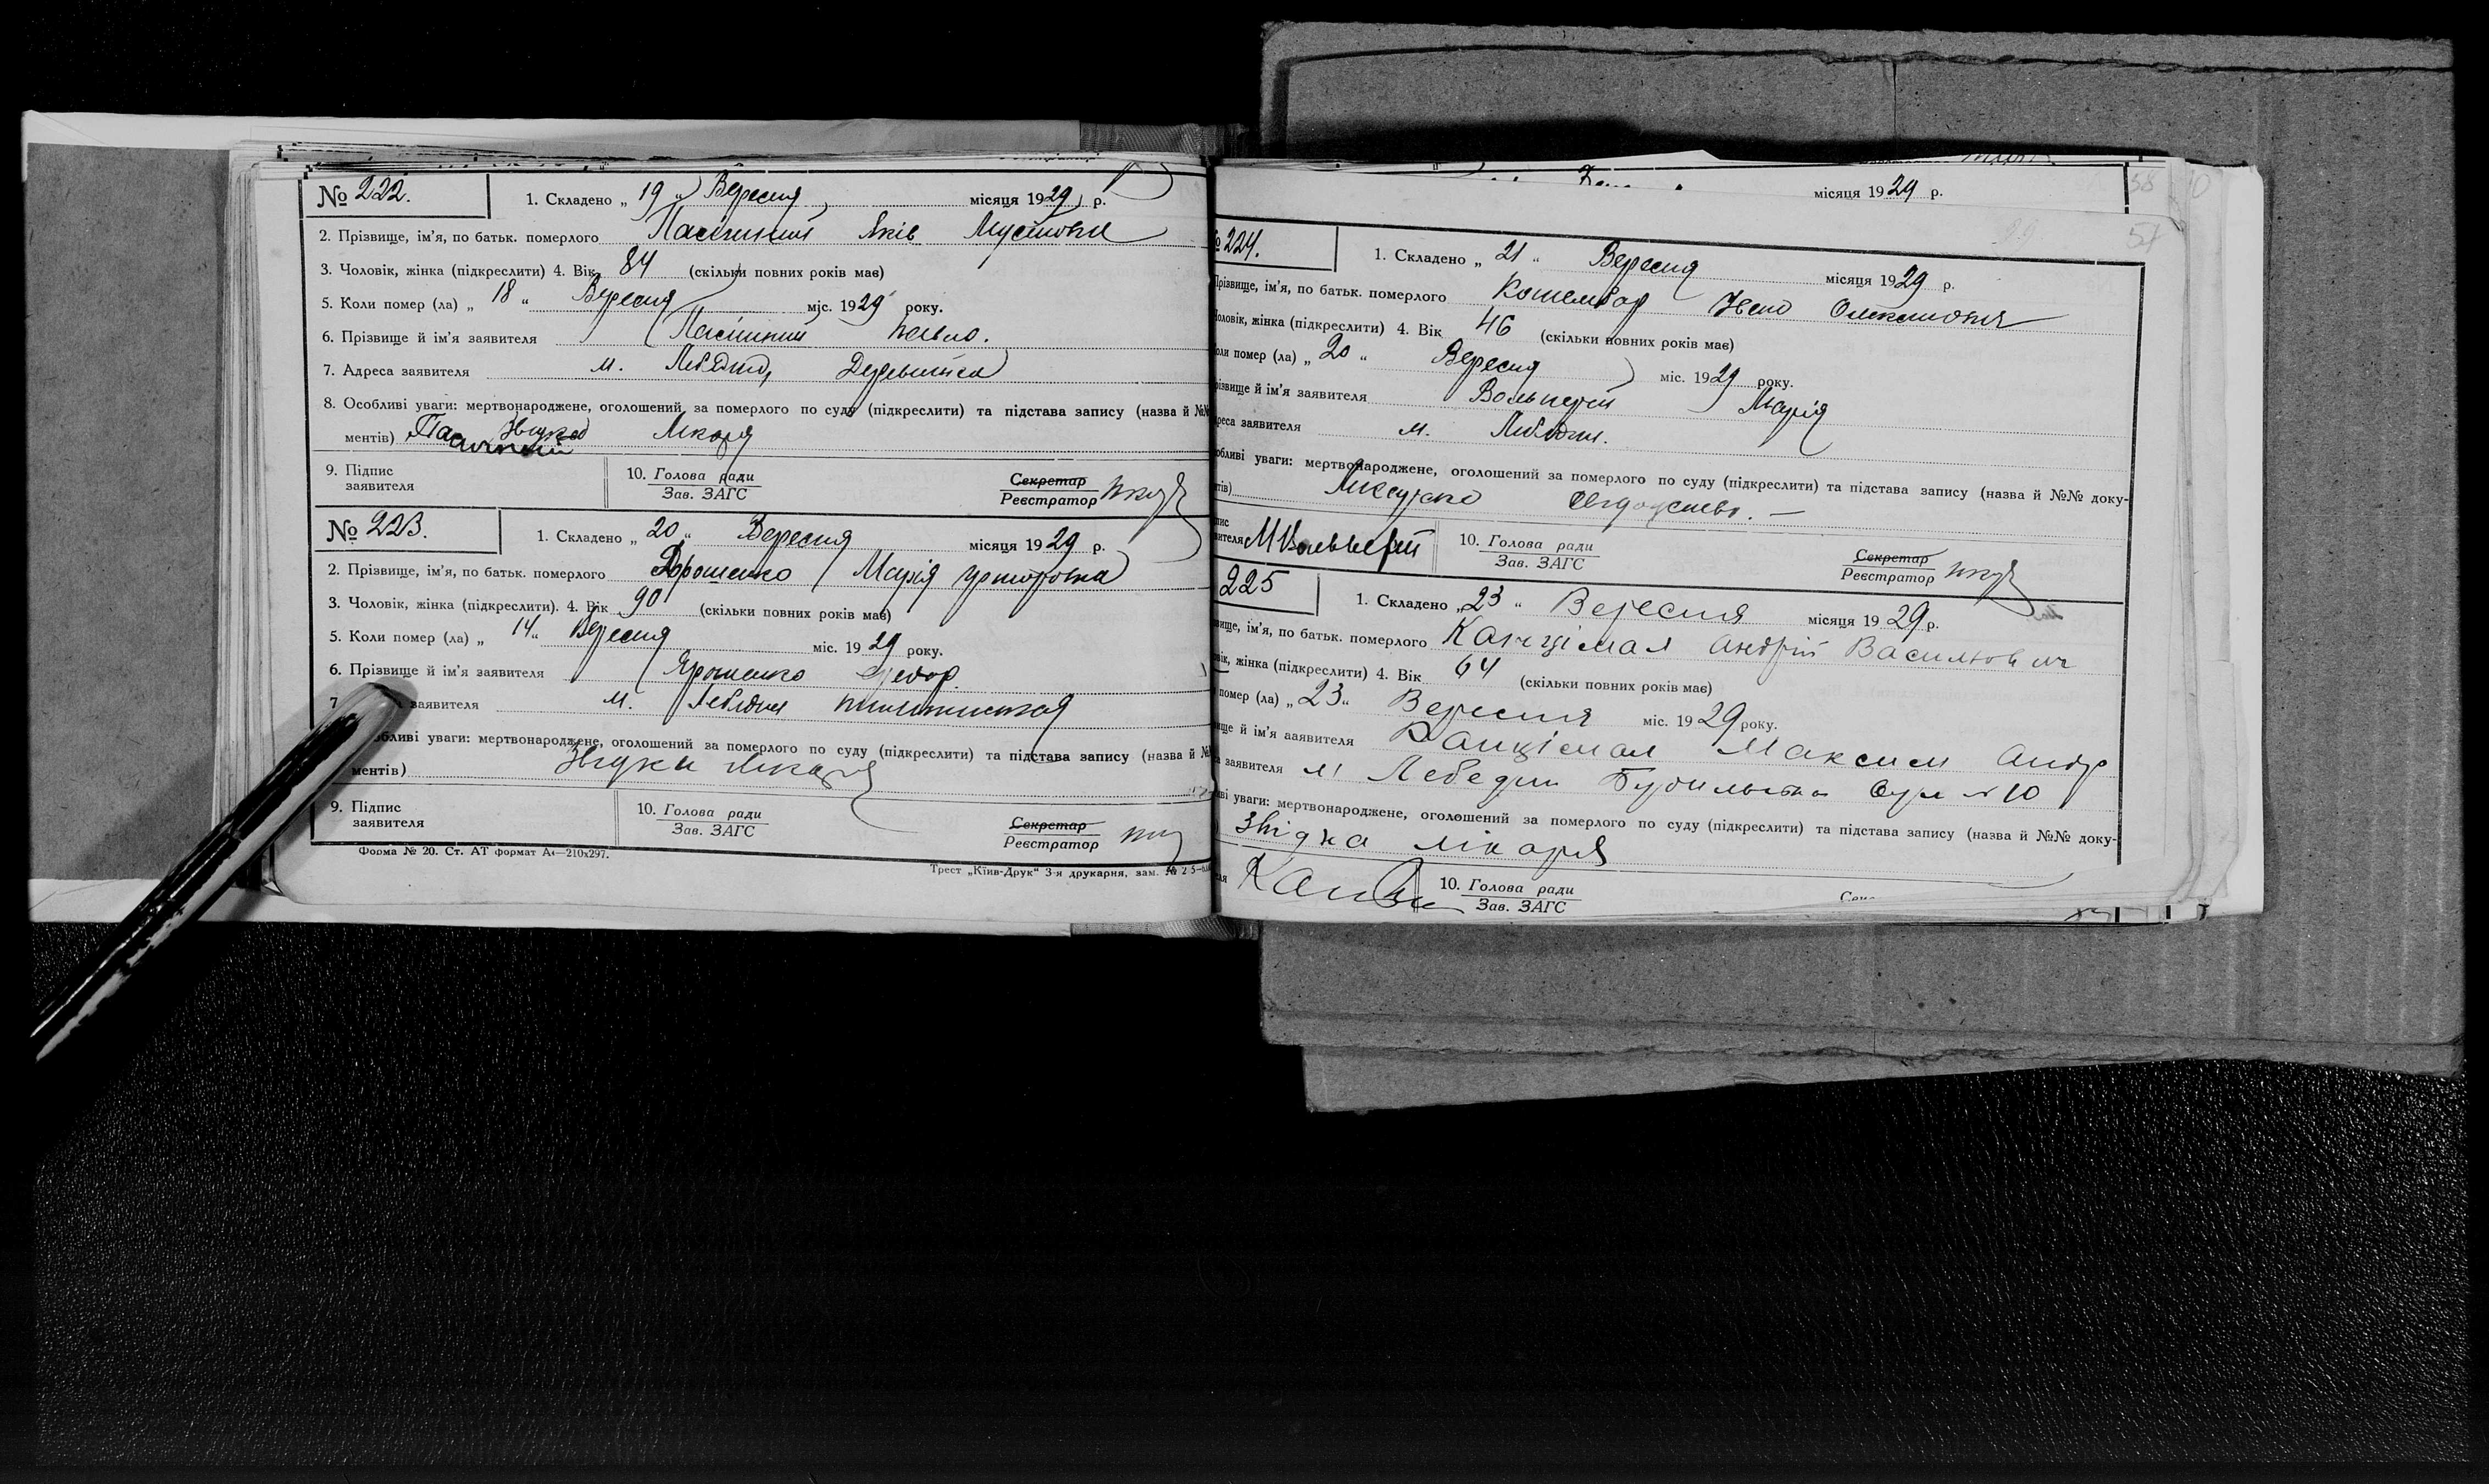 № 222.
1. Складено „ 19 „ Вересня місяця 1929 р.
2. Прізвище, ім'я, по батьк. померлого Яків
3. Чоловік, жінка (підкреслити) 4. Вік 84 (скільки повних років має)
5. Коли помер (ла) „ 18 “ Вересня міс. 1929 року.
6. Прізвище й ім'я заявителя Павло.
7. Адреса заявителя м. Лебедин,
8. Особливі уваги: мертвонароджене, оголошений за померлого по суду (підкреслити) та підстава запису (назва й №№
ментів) Лікаря
9. Підпис заявителя
10. Голова ради
Зав. ЗАГС
Секретар
Реєстратор
№ 223.
1. Складено „ 20 “ Вересня місяця 1929 р.
2. Прізвище, ім'я, по батьк. померлого Ярошенко Марія
3. Чоловік, жінка (підкреслити). 4. Вік 90 (скільки повних років має)
5. Коли помер (ла) „ 14 “ Вересня міс. 1929 року.
6. Прізвище й ім'я заявителя Ярошенко Федор.
7. заявителя м. Лебедин
обливі уваги: мертвонароджене, оголошений за померлого по суду (підкреслити) та підстава запису (назва й №
ментів) Звідка лікаря
9. Підпис заявителя
10. Голова ради
Зав. ЗАГС
Секретар
Реєстратор
Форма № 20. Ст. АТ формат А4—210х297.
Трест „Київ-Друк“ 3-я друкарня, зам. № 25
місяця 1929 р.
58
57
№ 224.
1. Складено „ 21 “ Вересня місяця 1929 р.
Прізвище, ім'я, по батьк. померлого
Чоловік, жінка (підкреслити) 4. Вік 46 (скільки повних років має)
Коли помер (ла) „ 20 “ Вересня міс. 1929 року.
різвище й ім'я заявителя Марія
дреса заявителя м. Лебедин.
обливі уваги: мертвонароджене, оголошений за померлого по суду (підкреслити) та підстава запису (назва й №№ доку-
нтів) Лікарське
пис
вителя
10. Голова ради
Зав. ЗАГС
Секретар
Реєстратор
225
1. Складено „ 23 “ Вересня місяця 1929 р.
вище, ім'я, по батьк. померлого Канцімал Андрій Васильович
вік, жінка (підкреслити) 4. Вік 64 (скільки повних років має)
помер (ла) „ 23 “ Вересня міс. 1929 року.
ище й ім'я заявителя Канцімал Максим Андр
а заявителя м Лебедин Будильська вул № 10
иві уваги: мертвонароджене, оголошений за померлого по суду (підкреслити) та підстава запису (назва й №№ доку-
Звідка лікаря
10. Голова ради
Зав. ЗАГС